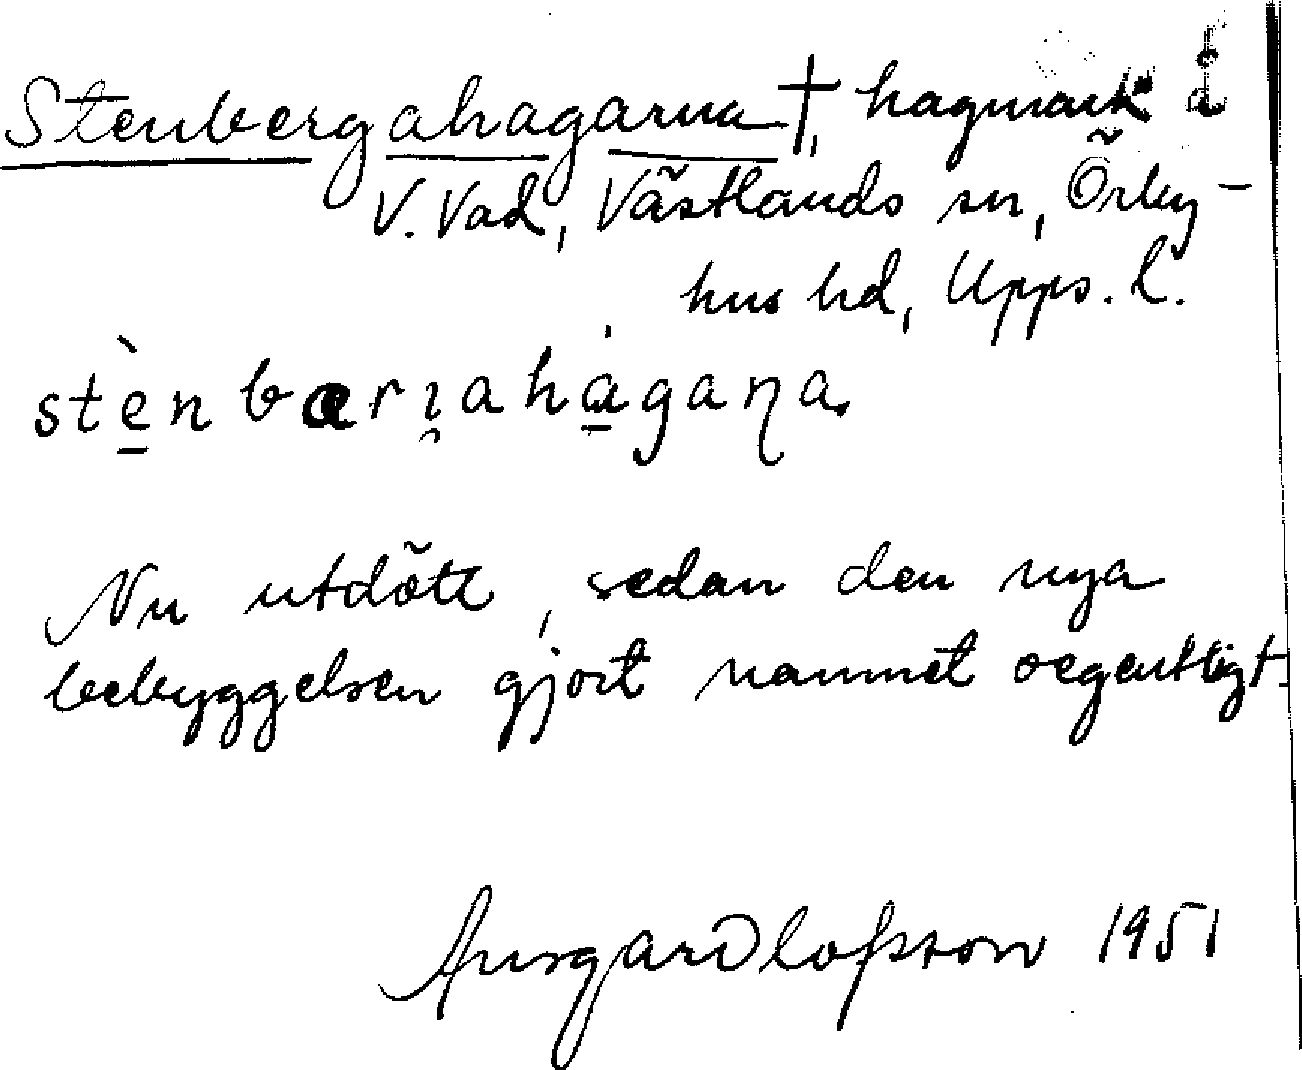 Stenbergahagarna †, hagmark å
V. Vad, Västlands sn, Örby-
hus hd, Upps. l.
stènbærı̯ahàgaɳa.
Nu utdött, sedan den nya
bebyggelsen gjort namnet oegentligt.
Ansgar Olofsson 1951